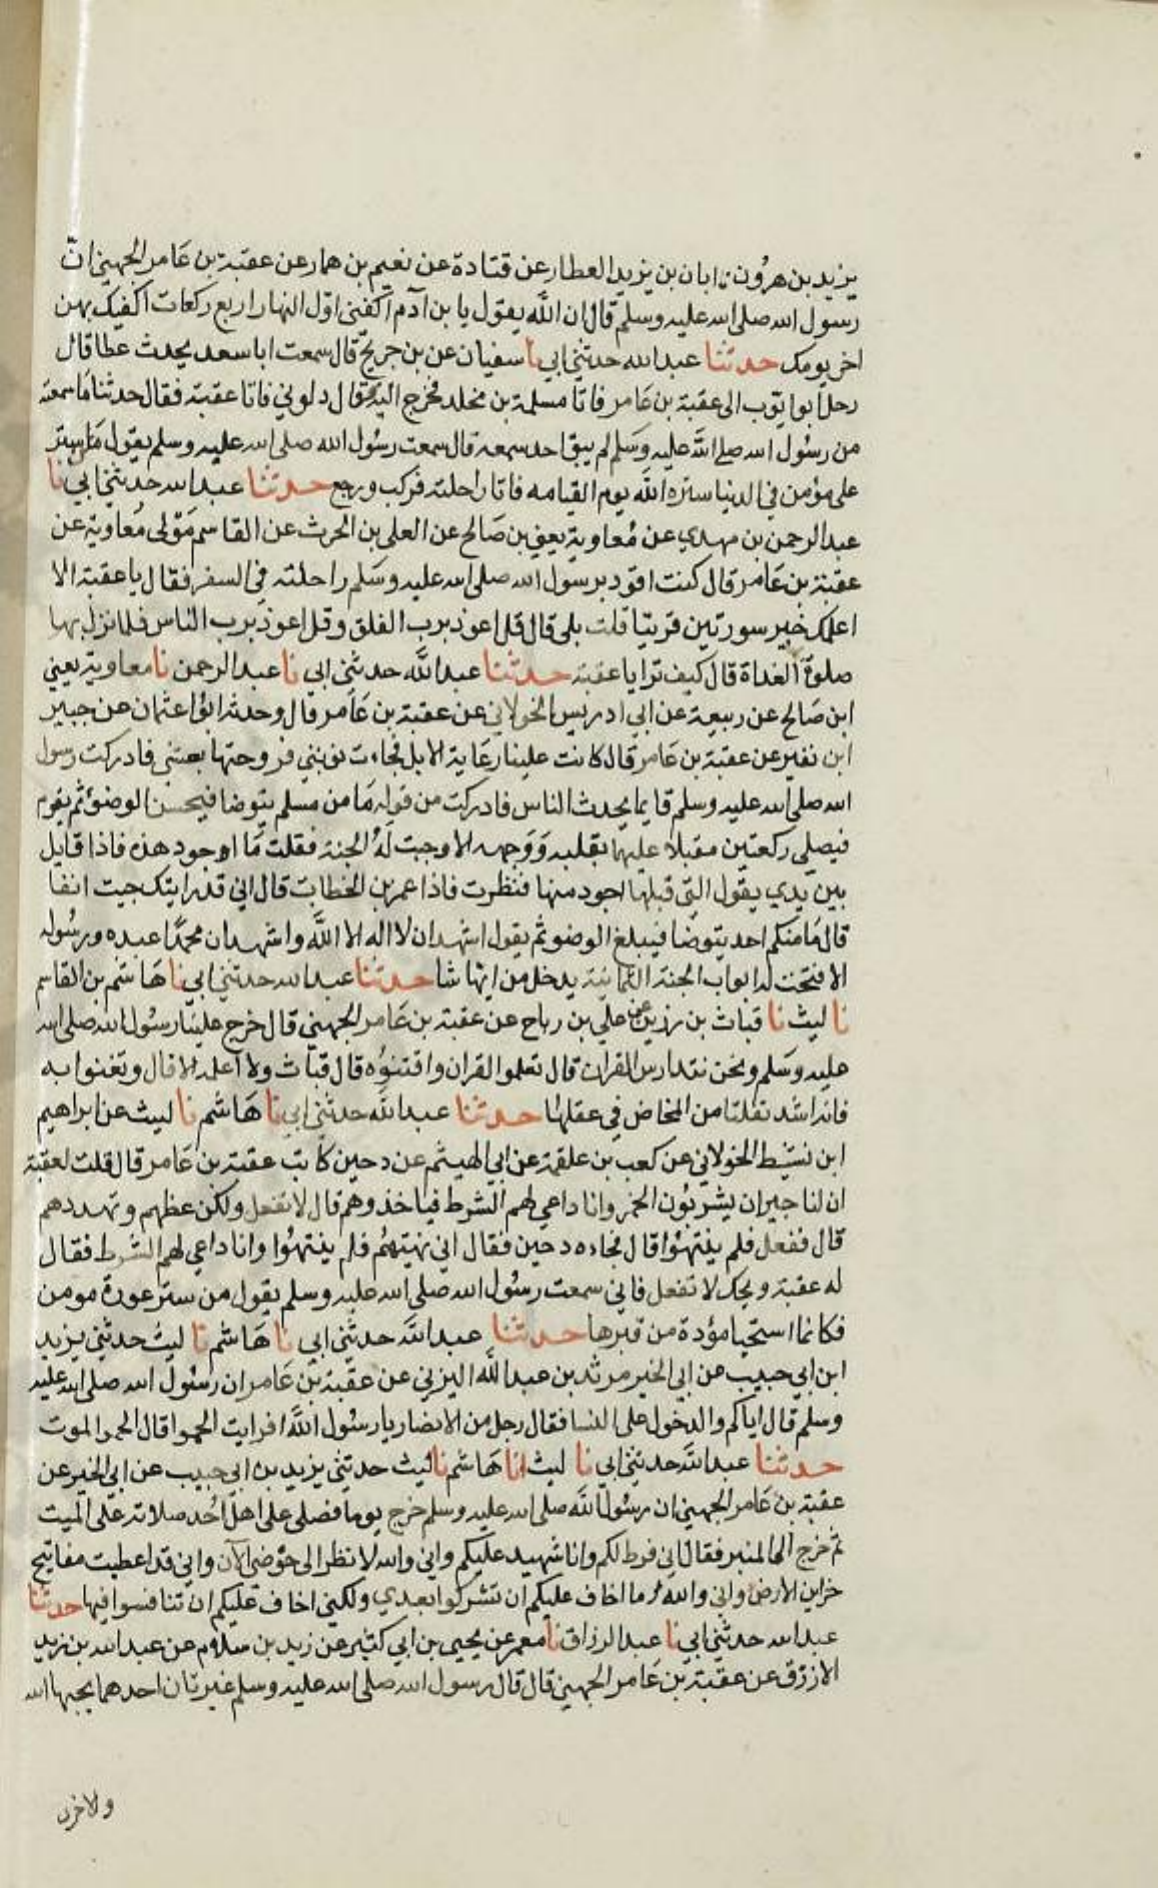 يزيد بن هرون نا ابان بن يزيد العطار عن قتادة عن نعيم بن همار عن عقبة بن عامر الجهني انّ
رسول الله صلى الله عليه وسلم قال ان الله يقول يا بن آدم اكفني اوّل النهار اربع ركعات اكفيك بهن
اخر يومك حدثنا عبد الله حدثني ابي نا سفيان عن بن جريج قال سمعت ابا سعد يحدث عطا قال
رحل ابو ايّوب الى عقبة بن عامر فاتا مسلمة بن مخلد فخرج اليه قال دلوني فاتا عقبة فقال حدثنا ما سمعته
من رسول الله صلى الله عليه وسلم لم يبق احد سمعه قال سمعت رسول الله صلى الله عليه وسلم يقول من ستر
على مؤمن في الدنيا ستره الله يوم القيامه فاتا راحلته فركب ورجع حدثنا عبد الله حدثني ابي نا
عبد الرحمن بن مهدي عن معاوية يعني بن صالح عن العلى بن الحرث عن القاسم مولى معاوية عن
عقبة بن عامر قال كنت اقود برسول الله صلى الله عليه وسلم راحلته في السفر فقال يا عقبة الا
اعلمك خير سورتين قريتا قلت بلى قال قل اعوذ برب الفلق وقل اعوذ برب الناس فلما نزل بها
صلوة الغداة قال كيف ترا يا عقبة حدثنا عبد الله حدثني ابي نا عبد الرحمن نا معاوية يعني
ابن صالح عن ربيعة عن ابي ادريس الخولاني عن عقبة بن عامر قال وحدثه ابو اعثمان عن جبير
ابن نفير عن عقبة بن عامر قال كانت علينا رعاية الابل فجاءت نوبتي فروحتها بعشي فادركت رسول
الله صلى الله عليه وسلم قايما يحدث الناس فادركت من قوله ما من مسلم يتوضا فيحسن الوضوء ثم يقوم
فيصلي ركعتين مقبلا عليهما بقلبه ووجهه الا وجبت له الجنة فقلت ما اجود هذه فاذا قايل
بين يدي يقول التي قبلها اجود منها فنظرت فاذا عمر بن الخطاب قال اني قد رايتك جيت انفا
قال ما منكم احد يتوضا فيبلغ الوضو ثم يقول اشهد ان لا اله الا الله واشهد ان محمدًا عبده ورسوله
الا فتحت له ابواب الجنة الثمانية يدخل من ايها شا حدثنا عبد الله حدثني ابي نا هاشم بن القاسم
نا ليث نا قباث بن رزين عن علي بن رباح عن عقبة بن عامر الجهني قال خرج علينا رسول الله صلى الله
عليه وسلم ونحن نتدارس القران قال تعلموا القران واقتنوه قال قباث ولا اعلمه الا قال وتغنوا به
فانه اشد تفلتا من المخاض في عقلها حدثنا عبد الله حدثني ابي نا هاشم نا ليث عن ابراهيم
ابن نشيط الخولاني عن كعب بن علقمة عن ابي الهيثم عن دحين كاتب عقبة بن عامر قال قلت لعقبة
ان لنا جيران يشربون الخمر وانا داعي لهم الشرط فياخذوهم قال لا تفعل ولكن عظهم وتهددهم
قال ففعل فلم ينتهوا قال فجاءه دحين فقال اني نهيتهم فلم ينتهوا وانا داعي لهم الشرط فقال
له عقبة ويحك لا تفعل فاني سمعت رسول الله صلى الله عليه وسلم يقول من ستر عورة مومن
فكانما استحيا مؤدة من قبرها حدثنا عبد الله حدثني ابي نا هاشم نا ليث حدثني يزيد
ابن ابي حبيب عن ابي الخير مرثد بن عبد الله اليزني عن عقبة بن عامر ان رسول الله صلى الله عليه
وسلم قال اياكم والدخول على النسا فقال رجل من الانصار يا رسول الله افرايت الحموا قال الحموا الموت
حدثنا عبد الله حدثني ابي نا ليث انا هاشم نا ليث حدثني يزيد بن ابي حبيب عن ابي الخير عن
عقبة بن عامر الجهني ان رسول الله صلى الله عليه وسلم خرج يوما فصلى على اهل احد صلاته على الميت
ثم خرج الى المنبر فقال اني فرط لكم وانا شهيد عليكم واني والله لانظر الى حوضي الآن واني قد اعطيت مفاتيح
خزاين الارض واني والله ما اخاف عليكم ان تشركوا بعدي ولكني اخاف عليكم ان تنافسوا فيها حدثنا
عبد الله حدثني ابي نا عبد الرزاق نا معمر عن يحيى بن ابي كثير عن زيد بن سلام عن عبد الله بن زيد
الازرق عن عقبة بن عامر الجهني قال قال رسول الله صلى الله عليه وسلم غيرتان احدهما يحبها الله
والاخرى